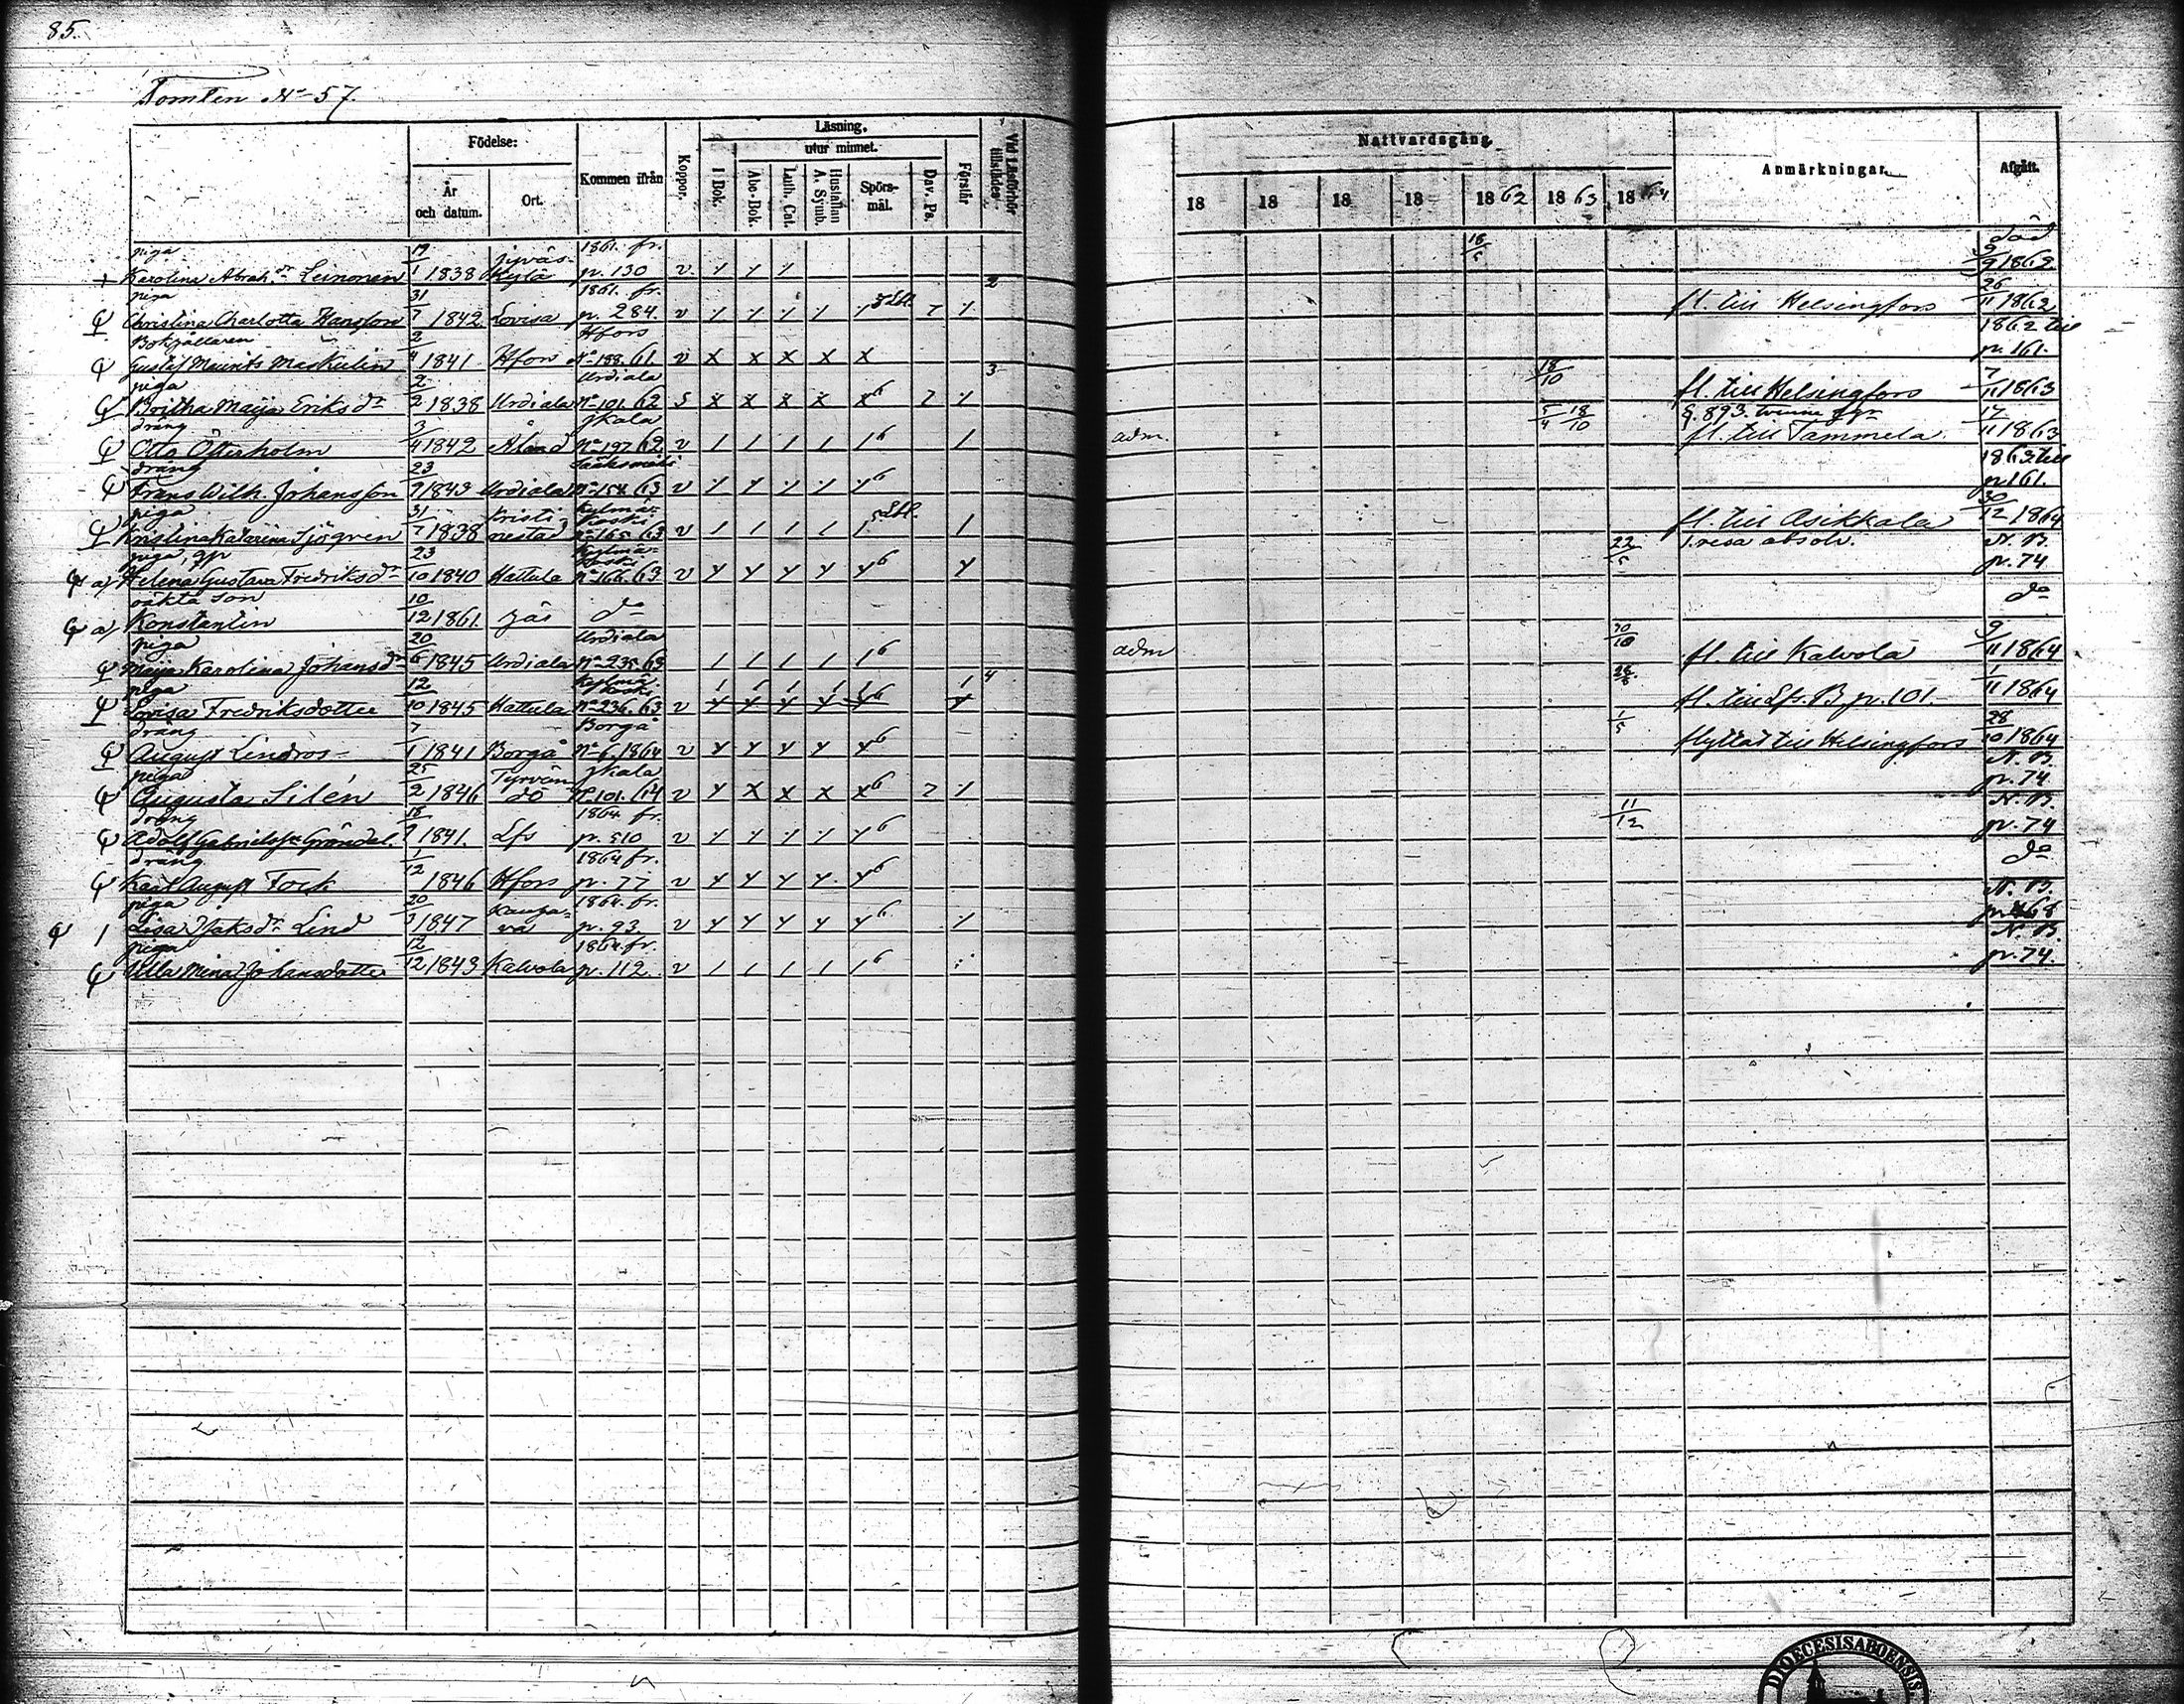 85.
Tomten No 57.
Födelse:
År och datum.
Ort.
Kommen ifrån
Koppor.
Läsning,
utur minnet.
I Bok.
Abc-Bok.
Luth. Cat.
Hustaflan A. Symb.
Spörs-mål.
Dav. Ps.
Förstår
Vid Läsförhör tillstädes
Nattvardsgång.
18 18 18 18 1862 1863 1864
Anmärkningar.
Afgått.
piga 19 Jyväs- 1861. fr. 16 död 9
+ Karolina Abrah.dr Leinonen 1 1838 kylä p. 130 v. 5 9 1863.
piga 31 1861. fr. 2 26
Christina Charlotta Hansson 7 1842 Lovisa p. 284. v fl. till Helsingfors 11 1862
Bokhållaren 2 Hfors 1862 till
Gustaf Maurits Maskulin 4 1841 Hfors No 188.61 v x x x x x p. 161.
piga 2 Urdiala 3 18 7
Britha Maija Eriksdr 2 1838 Urdiala No 101.62 s x x x x x 6 10 fl. till Helsingfors 11 1863
dräng 3 Jkala 5 18 §. 893. 17
Otto Österholm 4 1842 Åland No 197 62. v 6 adm. 4 10 fl. till Tammela 11 1863
dräng 23 Sääksmäki 1863 till
Frans Wilh. Johansson 9 1843 Urdiala No 154 63 v 6 p 161.
piga 31 Kristi- Kylmä- 30
Kristina Katarina Sjögren 7 1838 nestad koski No 165 63 v fl. till Asikkala 12 1864
piga, qp 23 Kylmä- 22 1. resa absolv. N. B.
a) Helena Gustava Fredriksdr 10 1840 Hattula koski No 166.63 v 6 5 p. 74
oäkta son 10
a) Konstantin 12 1861. do do
piga 20 Urdiala 30 9
Maija Karolina Johansdr 6 1845 Urdiala No 235 63 6 adm 10 fl. till Kalvola 11 1864
piga 12 Kylmä- 4 1
Lovisa Fredriksdotter 10 1845 Hattula koski No 236.63 v 6 fl. till Lfs. B. p. 101. 11 1864
dräng 7 Borgå 1 28
August Lindros 1 1841 Borgå No 6, 1864 v 6 5 flyttat till Helsingfors 10 1864
piga 25 Tyrvän- Jkala N. B.
Augusta Silén 2 1846 dö No 101. 64 v x x x x 6 p. 74
dräng 18 1864 fr. 11 N. B.
Adolf Gabrielsson Gröndal. 1841. Lfs p. 510 v 6 12 p. 74
dräng 1 1864 fr.
Karl August Fock 12 1846 Hfors p. 77 v 6 do
piga 20 Kauha- 1864. fr. N. B.
1 Lisa Isaksdr Lind 3 1847 va p. 93 v 6 p 68
piga 12 1864. fr. N. B.
Ulla Mina Johansdotter 12 1843 Kalvola p. 112 v 6 p. 74.
DIOECESIS ABOENSIS